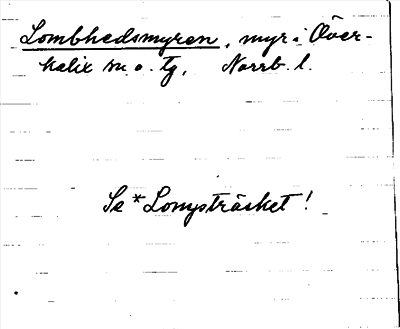 Lombhedsmyren, myr i Över-
kalix sn. o. tg, Norrb. l.
Se *Lomysträsket!